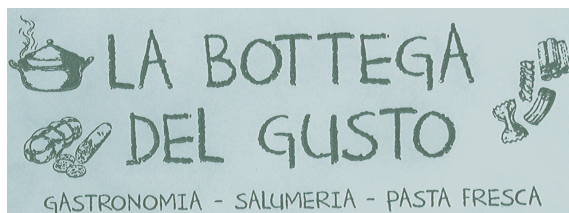 LA BOTTEGA
DEL GUSTO
GASTRONOMIA - SALUMERIA - PASTA FRESCA